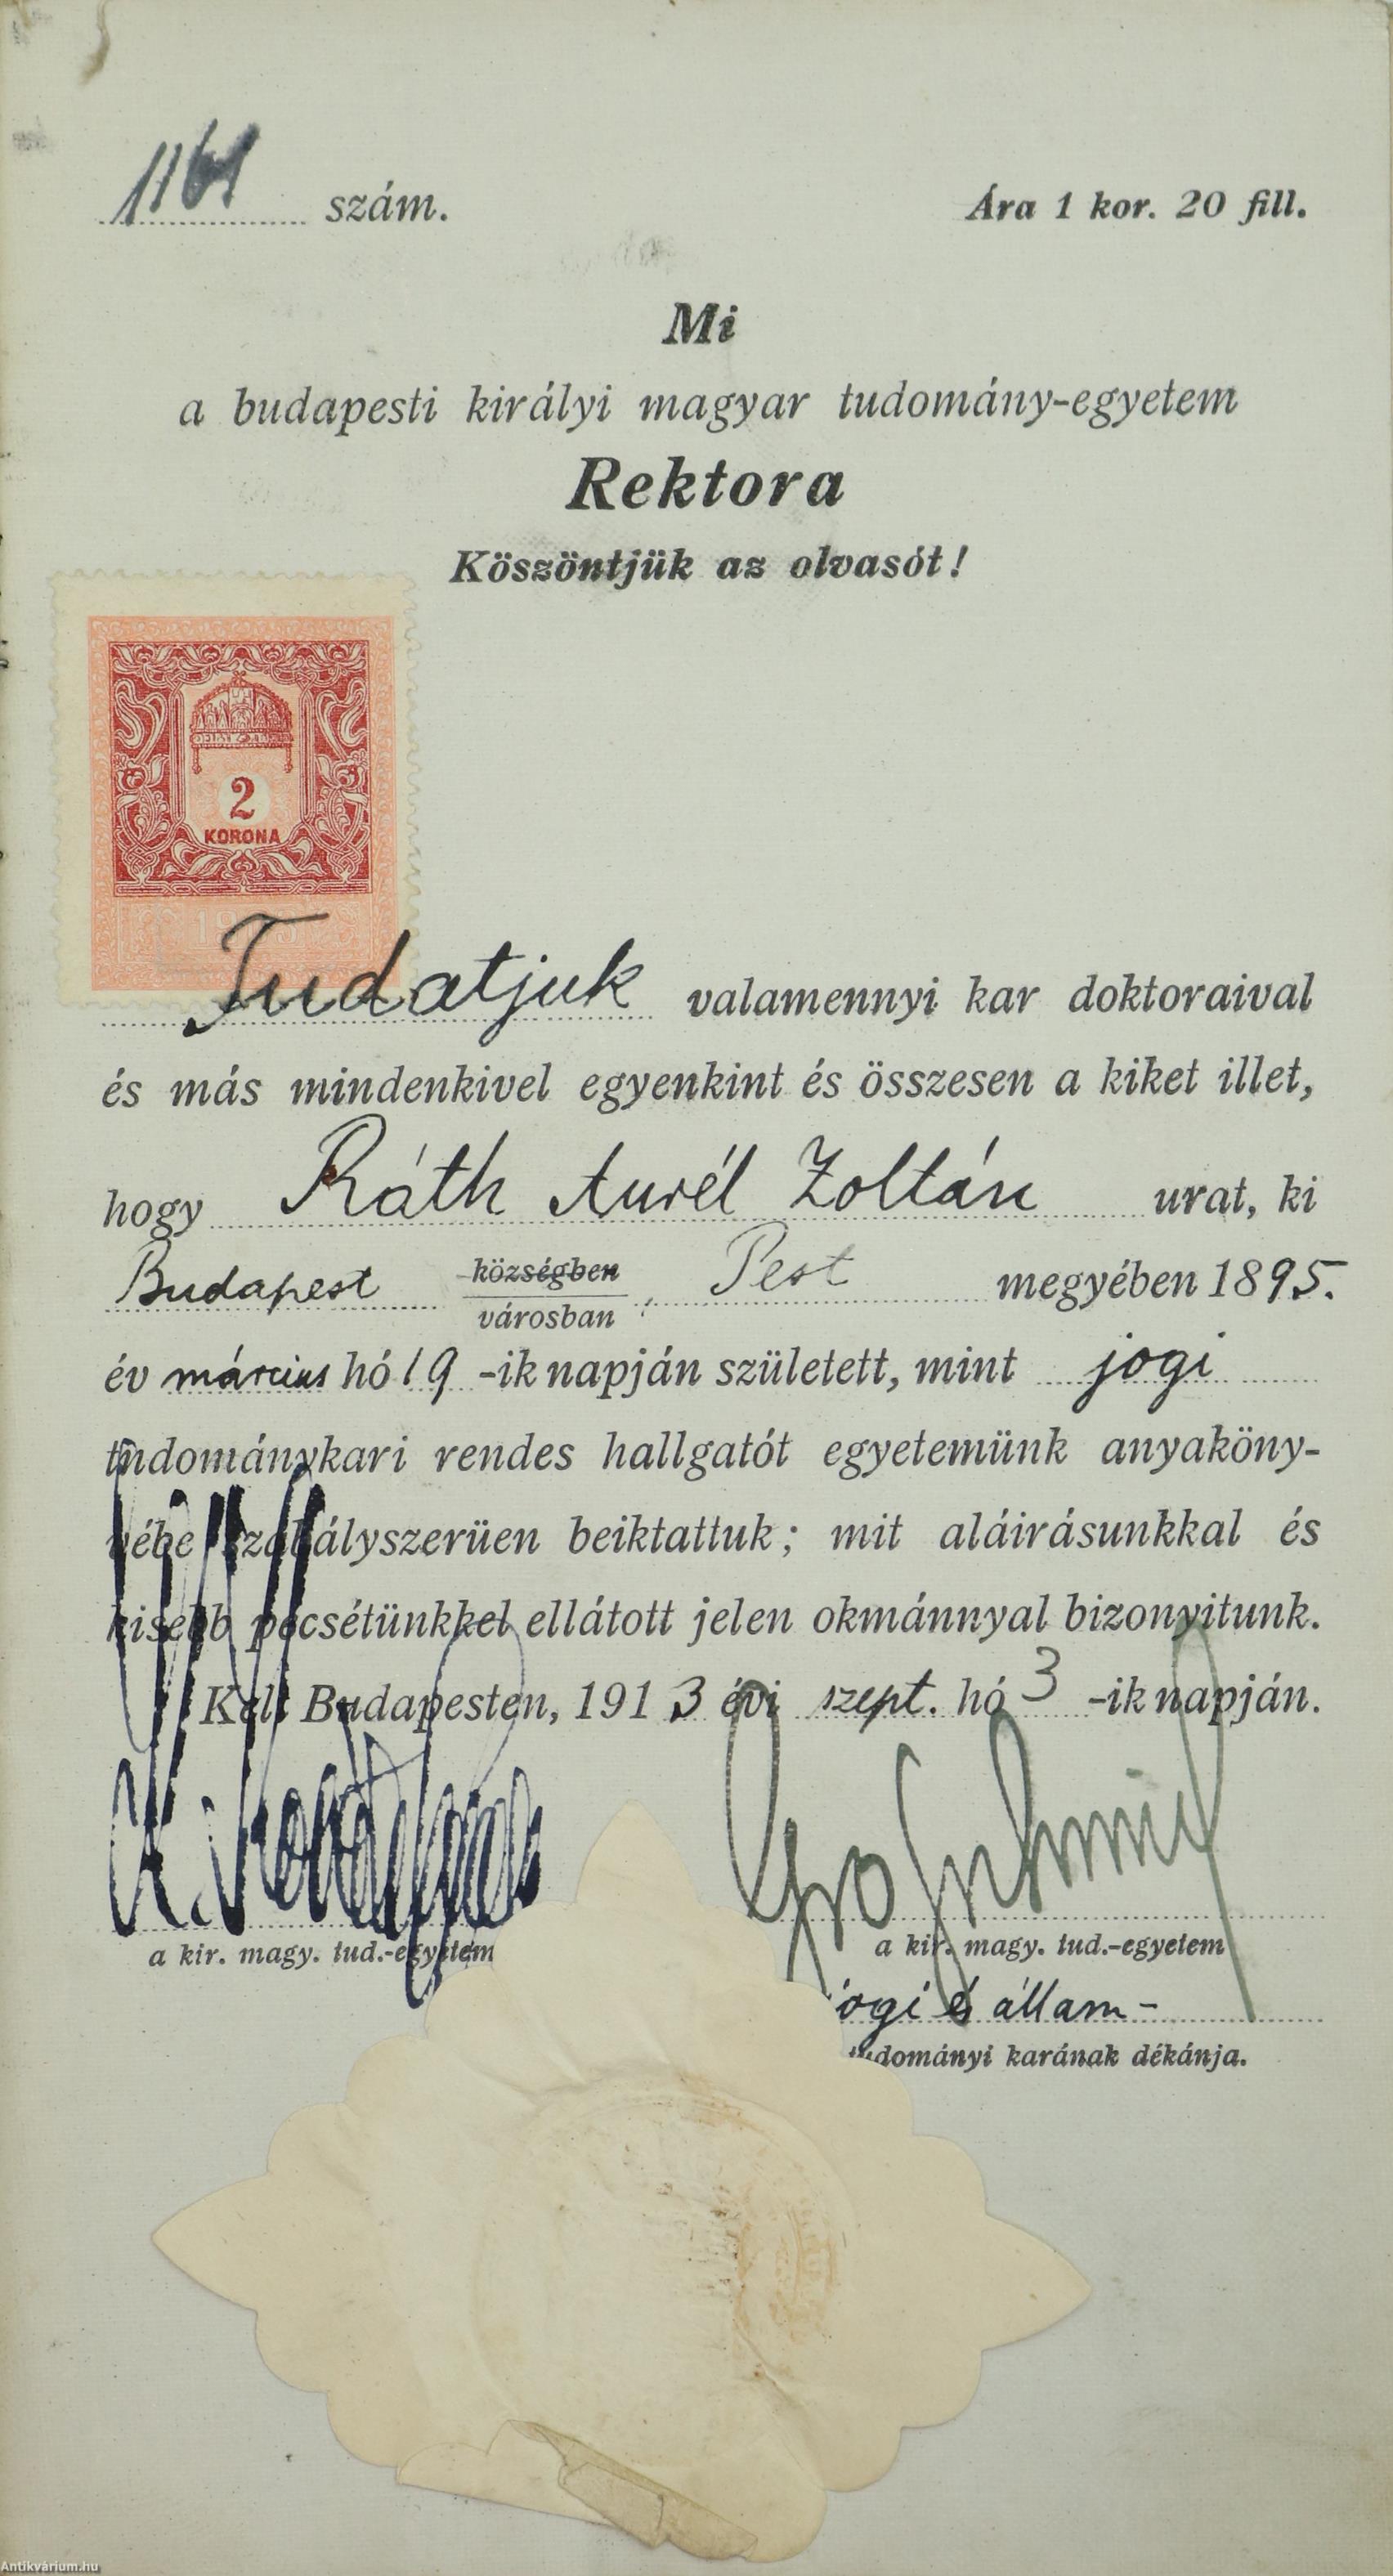 1161 szám.
Ára 1 kor. 20 fill.
Mi
a budapesti királyi magyar tudomány-egyetem
Rektora
Köszöntjük az olvasót!
2
KORONA
Tudatjuk valamennyi kar doktoraival
és más mindenkivel egyenkint és összesen a kiket illet,
hogy Ráth Aurél Zoltán urat, ki
Budapest községben városban, Pest megyében 1895.
év március hó 19 -ik napján született, mint jogi
tudománykari rendes hallgatót egyetemünk anyaköny-
vébe szabályszerüen beiktattuk; mit aláirásunkkal és
kisebb pecsétünkkel ellátott jelen okmánnyal bizonyitunk.
Kelt Budapesten, 1913 évi szept. hó 3 -ik napján.
a kir. magy. tud.-egyetem
a kir. magy. tud.-egyetem
jogi és állam-
tudományi karának dékánja.
Antikvárium.hu